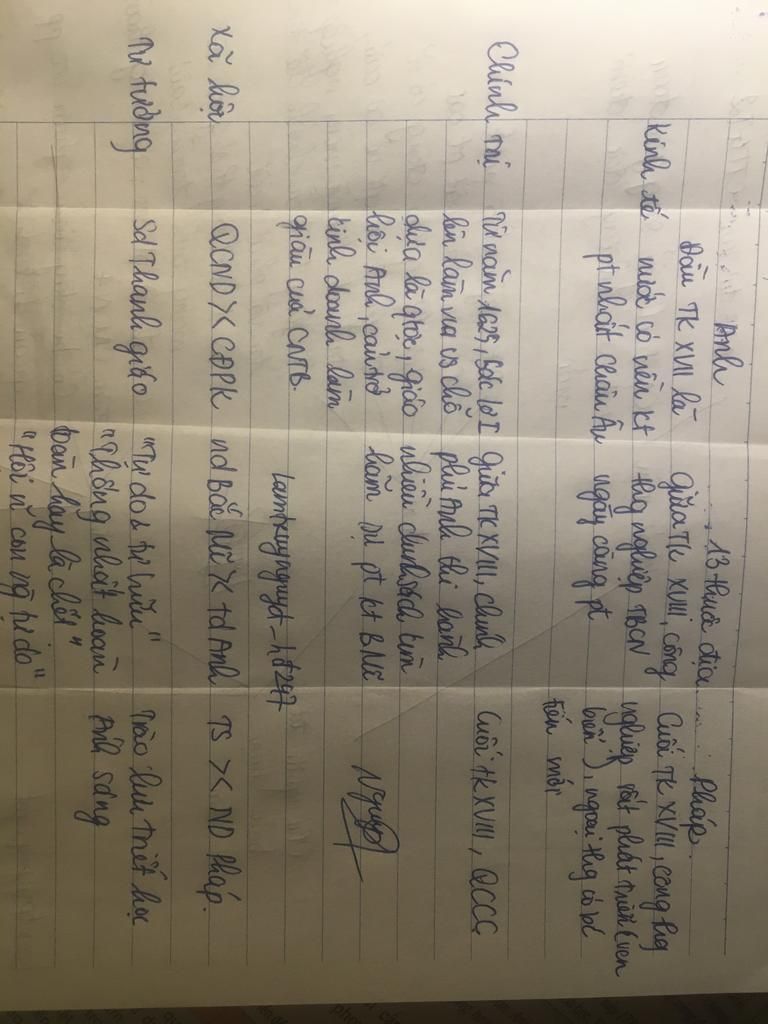 Anh
13 thuộc địa
Pháp
Kinh tế
Đầu TK XVII là
nước có nền kt
pt nhất châu Âu
Giữa TK XVIII, công
thg nghiệp TBCN
ngày càng pt
Cuối TK XVIII, công thg
nghiệp rất phát triển (ven
biển), ngoại thg có bc
tiến mới
Chính trị
Từ năm 1625, Sác lơ I
lên làm vua vs chỗ
dựa là qtộc, giáo
hội Anh, cản trở
kinh doanh làm
giàu của CNTB.
Giữa TK XVIII, chính
phủ Anh thi hành
nhiều chính sách kìm
hãm sự pt kt BMĩ
Cuối TK XVIII, QCCC
Nguyệt
lamtuynguyt_ht247
Xã hội
QCND >< CĐPK
nd Bắc Mĩ >< td Anh
TS >< ND Pháp.
Tư tưởng
Sd Thanh giáo
"Tự do, tư hữu"
"Thống nhất hoàn
toàn hay là chết"
"Hội n con ng tự do"
Trào lưu triết học
Ánh sáng